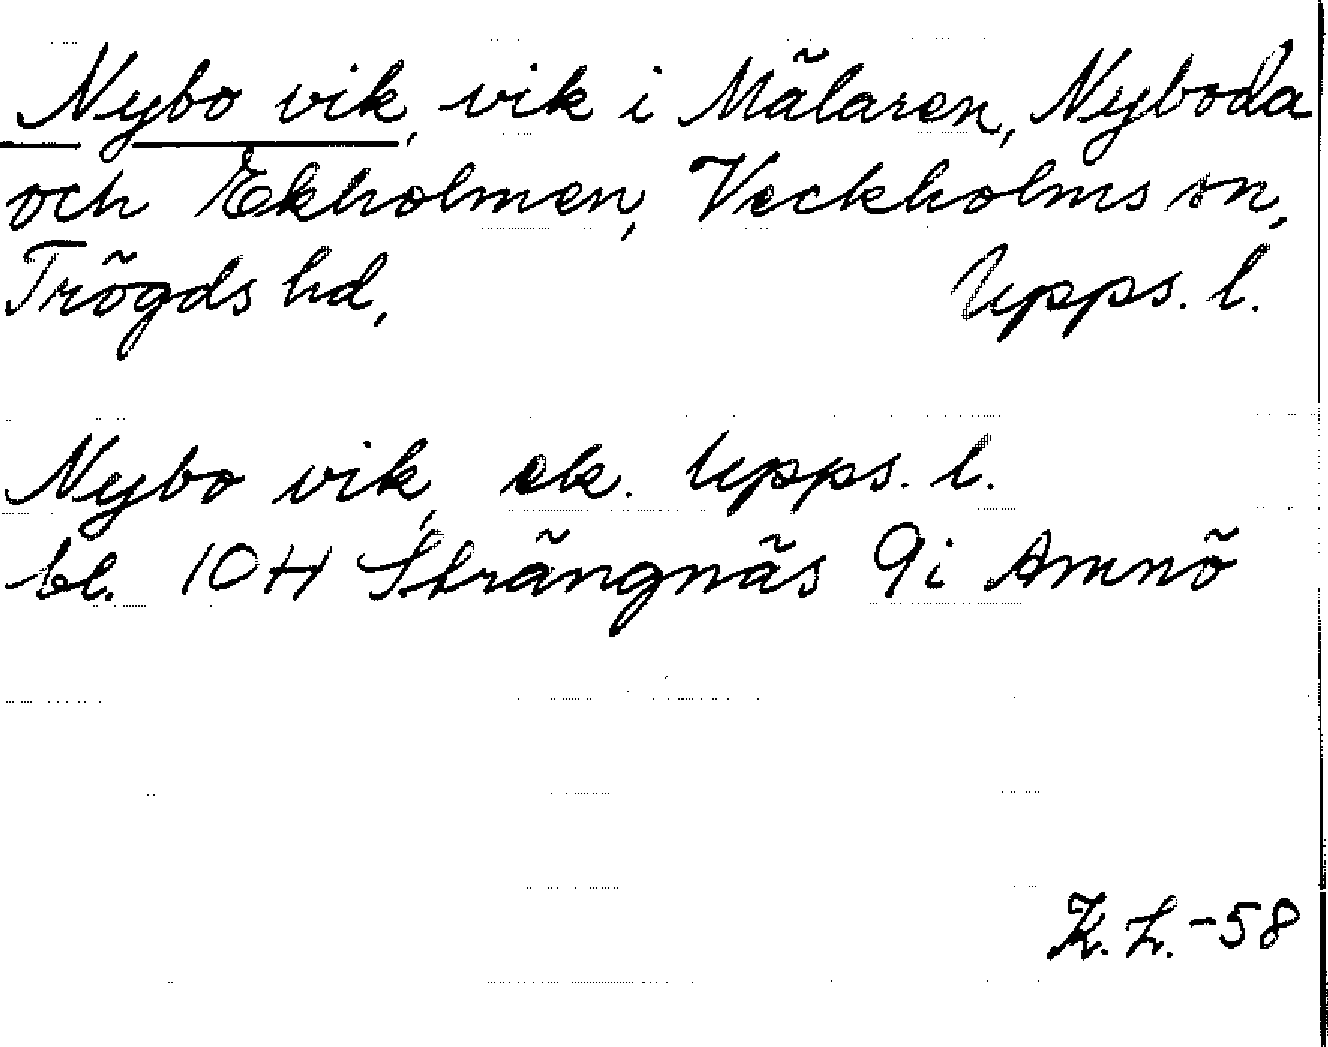 Nybo vik, vik i Mälaren, Nyboda
och Ekholmen, Veckholms sn,
Trögds hd, Upps. l.
Nybo vik, ek. Upps. l.
bl. 10H Strängnäs 9i Arnö
K. L. -58